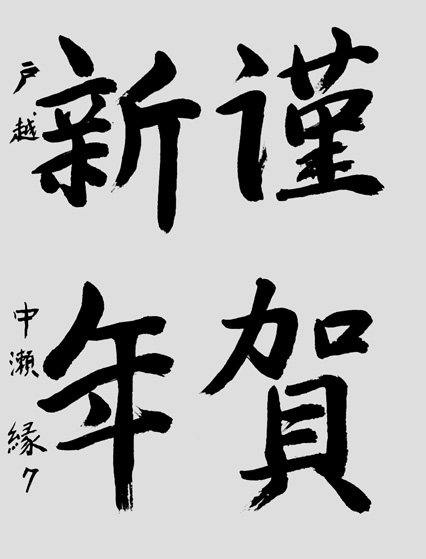 謹賀
新年
戸越 中瀬 縁7